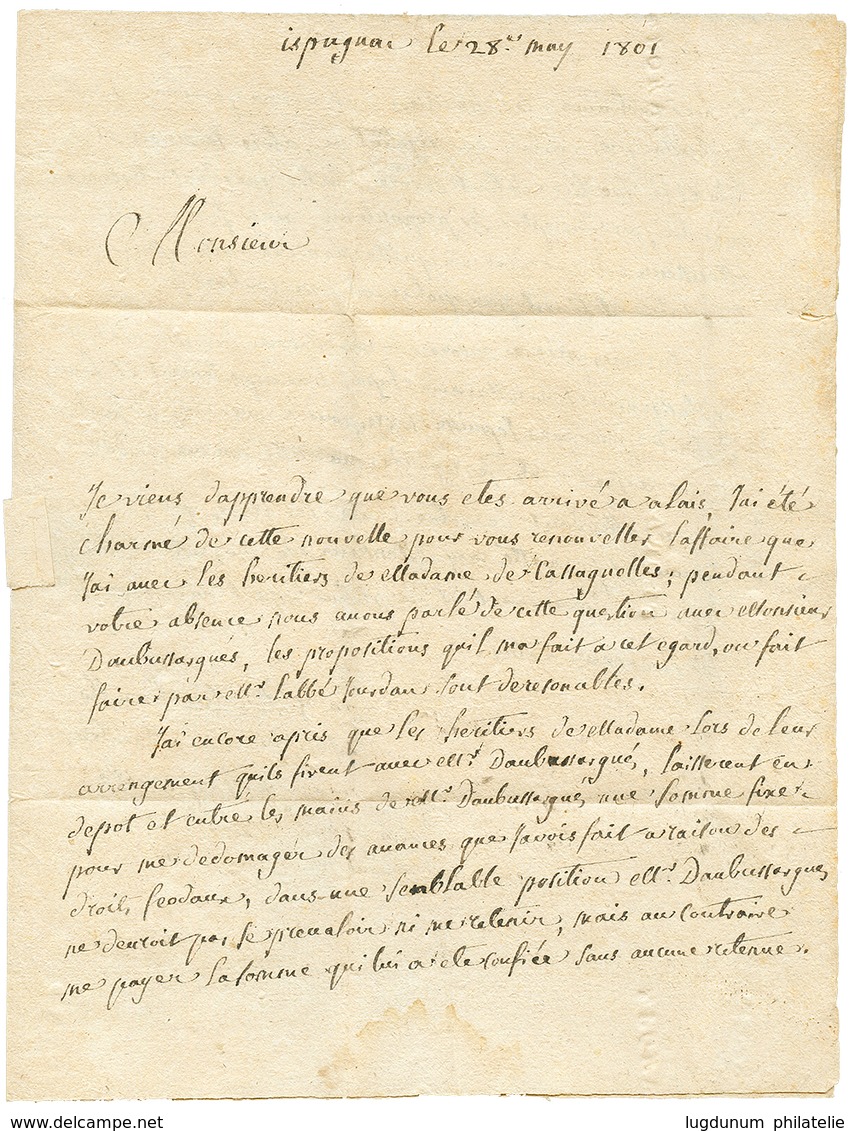 ispagnac le 28.me may 1801
Monsieur
Je viens dapprendre que vous etes arrivé a alais, J'ai été
charmé de cette nouvelle pour vous renouveller laffaire que
J'ai avec les heritiers de Madame de Cassagnolles; pendant
votre absence nous avons parlé de cette question avec Monsieur
Daubussargués, les propositions quil ma fait a cet egard, ou fait
faire par Mr. Labbé Jourdan sont deresonables.
J'ai encore apris que les heritiers de Madame lors de leur
arrengement quils firent avec Mr. Daubussargués, laisserent en
depot et entre les mains de Mr. Daubussargués une somme fixe
pour me dedomager des avances que Javois fait a raison des
droits feodaux, dans une semblable position Mr. Daubussargues
ne devroit pas se prevaloir ni me retenir, mais au contraire
me payer la somme qui lui a ete confiée sans aucune retenue.
www.delcampe.net
lugdunum philatelie